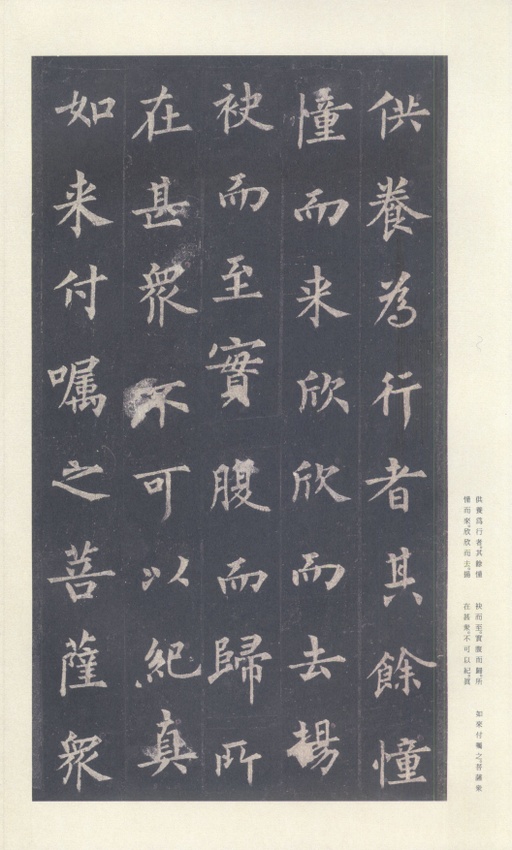 供養為行者其餘憧
憧而来欣欣而去揚
袂而至實腹而歸所
在甚衆不可以紀真
如来付嘱之菩薩衆
供養爲行者其餘憧
憧而來欣欣而去揚
袂而至實腹而歸所
在甚衆不可以紀真
如來付囑之菩薩衆